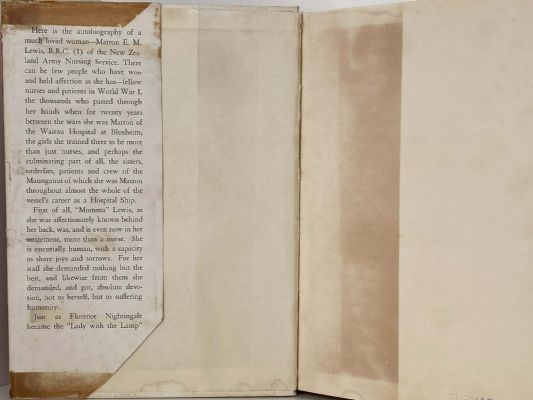 Here is the autobiography of a
much loved woman—Matron E. M.
Lewis, R.R.C. (1) of the New Zea-
land Army Nursing Service. There
can be few people who have won
and held affection as she has—fellow
nurses and patients in World War I,
the thousands who passed through
her hands when for twenty years
between the wars she was Matron of
the Wairau Hospital at Blenheim,
the girls she trained there to be more
than just nurses, and perhaps the
culminating part of all, the sisters,
orderlies, patients and crew of the
Maunganui of which she was Matron
throughout almost the whole of the
vessel's career as a Hospital Ship.
First of all, "Momma" Lewis, as
she was affectionately known behind
her back, was, and is even now in her
retirement, more than a nurse. She
is essentially human, with a capacity
to share joys and sorrows. For her
staff she demanded nothing but the
best, and likewise from them she
demanded, and got, absolute devo-
tion, not to herself, but to suffering
humanity.
Just as Florence Nightingale
became the "Lady with the Lamp"